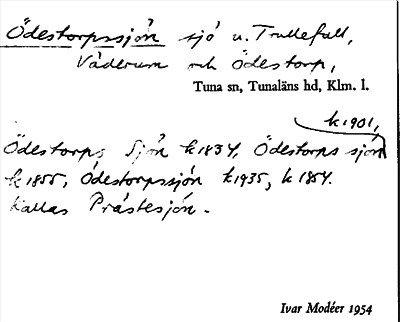 Ödestorpssjön sjö v. Trullefall,
Väderum och Ödestorp,
Tuna sn, Tunaläns hd, Klm. l.
k 1901,
Ödestorps Sjön k 1834, Ödestorps sjön
k 1855, Ödestorpssjön k 1935, k 1854.
Kallas Prästesjön.
Ivar Modéer 1954